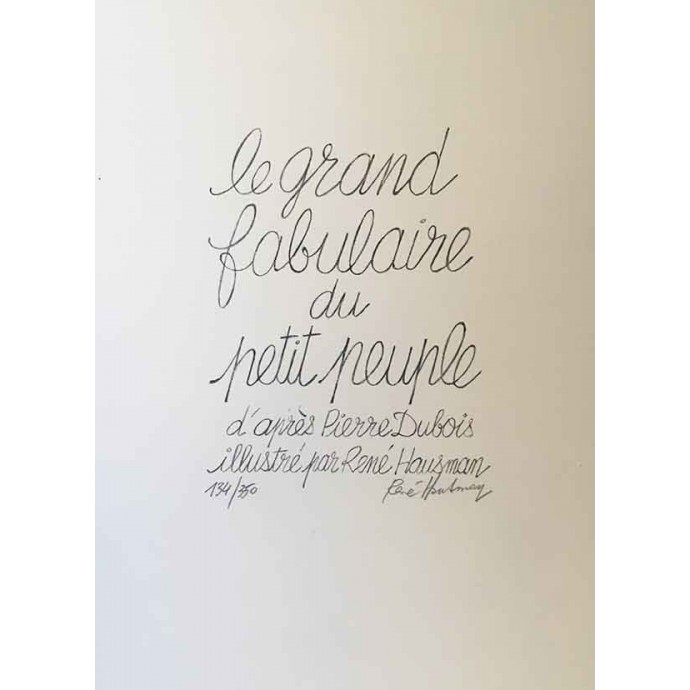 le grand
fabulaire
du
petit peuple
d'après Pierre Dubois
illustré par René Hausman
134/350 René Hausman